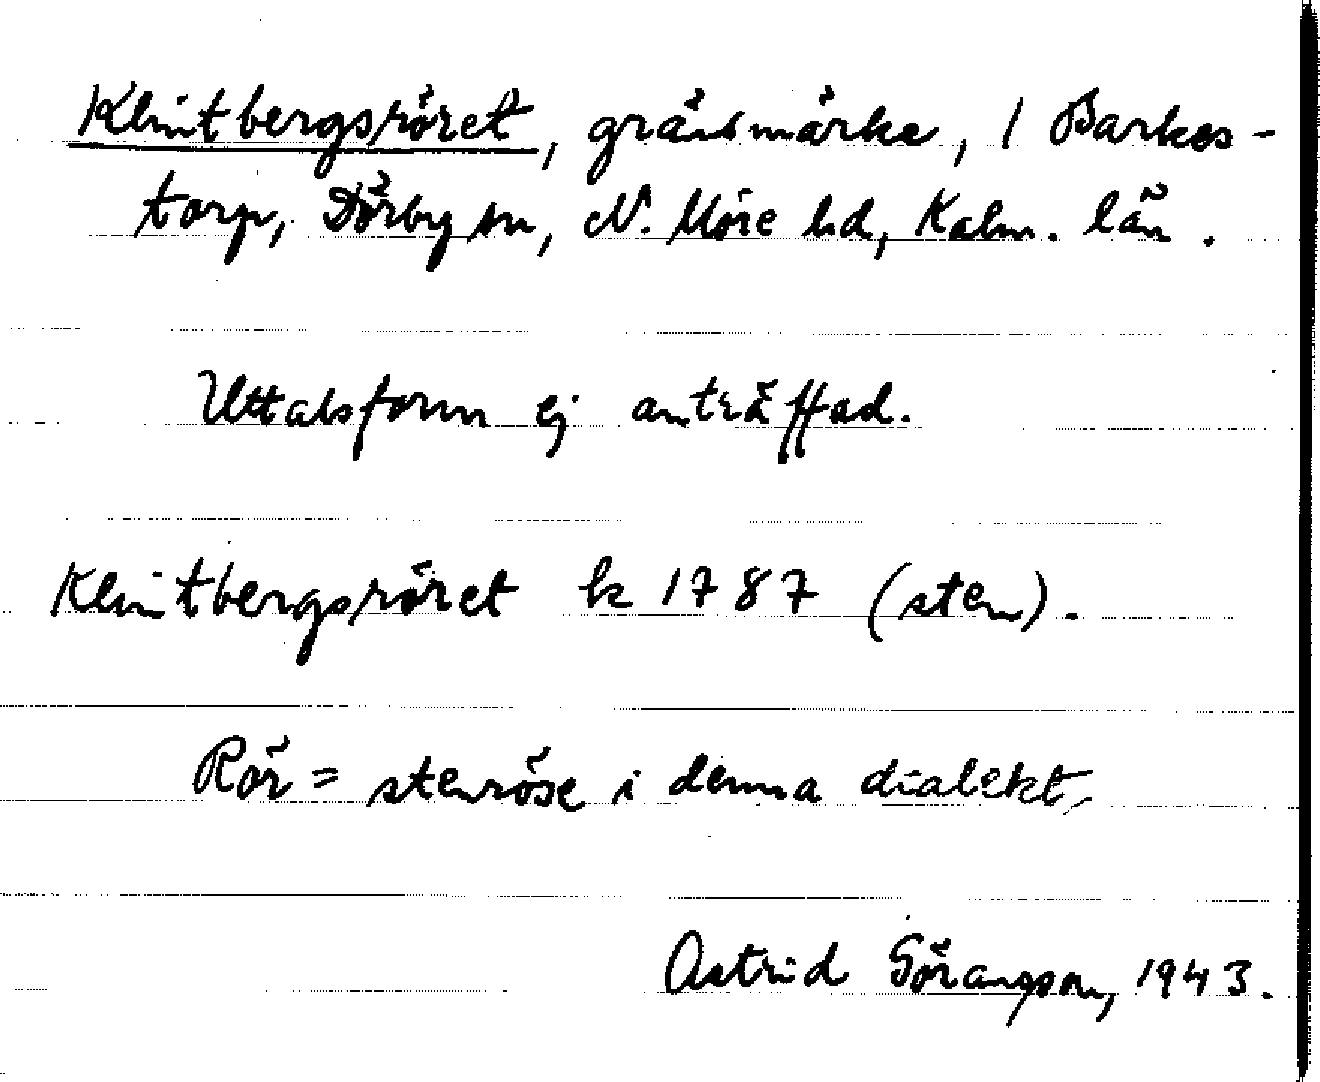 Klintbergsröret, gränsmärke, 1 Barkes-
torp, Dörby sn, N. Möre hd, Kalm. län.
Uttalsform ej anträffad.
Klintbergsröret k 1787 (sten).
Rör = stenröse i denna dialekt,
Astrid Göransson, 1943.